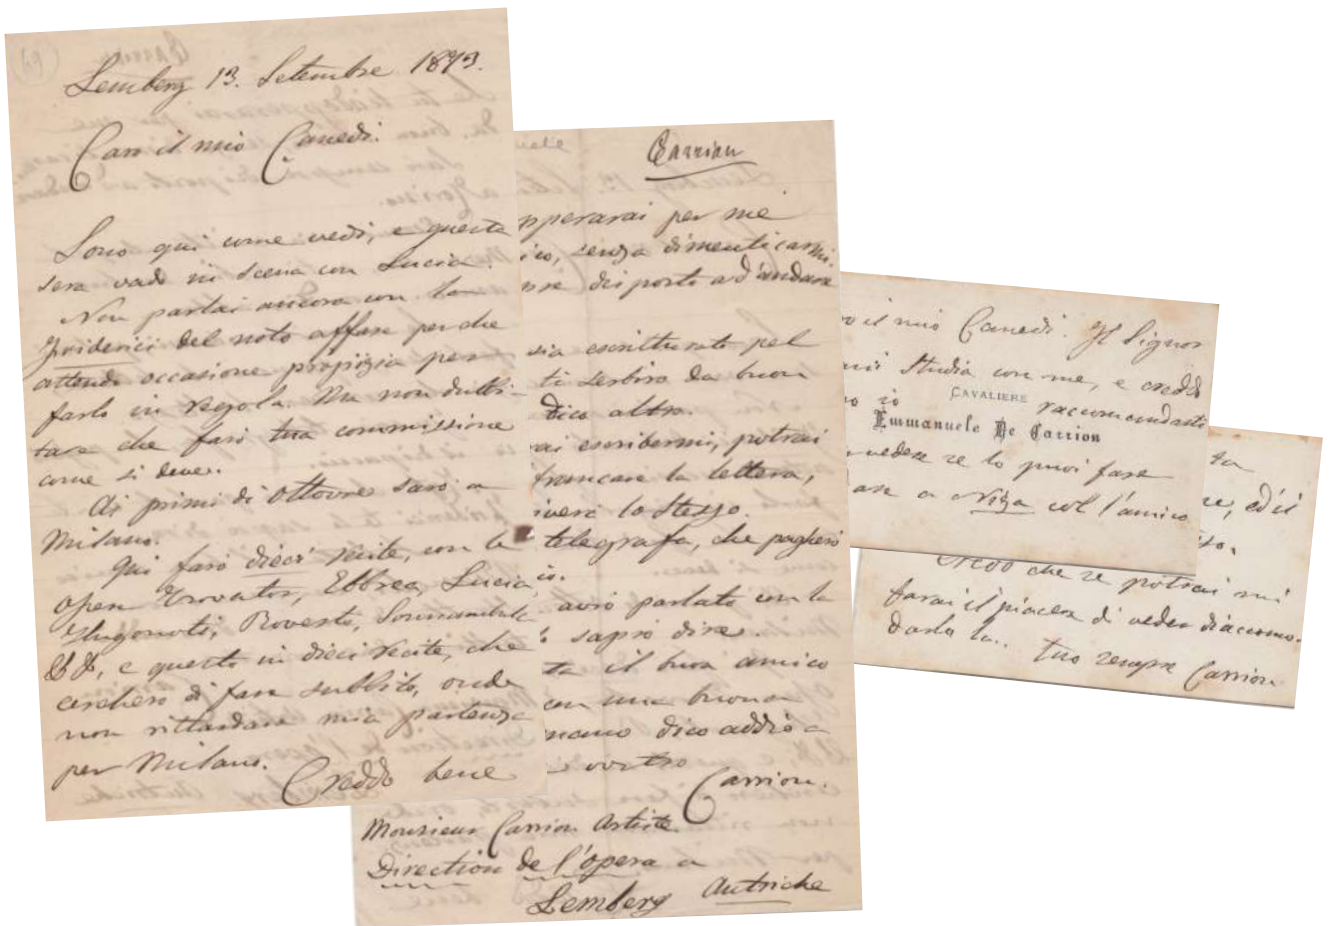 Lemberg 13. Setembre 1873.
Caro il mio Canedi.
Sono qui come vedi, e questa
sera vado in scena con Lucia.
Non parlai ancora con la
Friderici del noto affare perche
attendo occasione propizia per
farlo in regola. Ma non dubbi-
tare che farò tua commissione
come si deve.
Ai primi di Ottovre sarò a
Milano.
Qui farò dieci recite, con le
opere Trovator, Ebbrea, Lucia
Hugonoti, Roverto, Sonnambula
e questo in dieci recite, che
cerchero di fare subbito, onde
non rittardare mia partenza
per Milano.
Creddo bene
Carrion
perarai per me
senza dimenticarmi
dei porto a d'andare
sia escritturato pel
ti serbiro da buon
dico altro.
escribermi, potrai
francare la lettera,
lo stesso.
telegrafa, che pagherò
avrò parlato con la
sapro dire
il buon amico
con una buona
mano dico addio a
Carrion.
Monsieur Carrion Artiste
Direction de l'opera a
Lemberg Autriche
il mio Canedi. Il Signor
Studia con me, e creddo
io raccomandarti
CAVALIERE
Emmanuele De Carrion
vedere se lo puoi fare
a Niza col l'amico
ta
ed il
Credo che se potrai mi
farai il piacere di veder diacomo-
darlo la.
tuo sempre Carrion